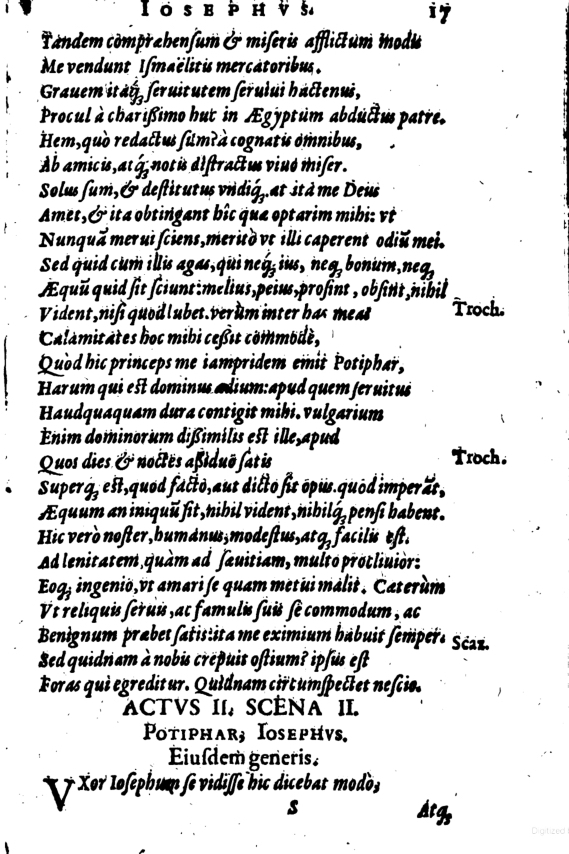 IOSEPHVS. 17
Tandem comprahensum & miseris afflictum modis
Me vendunt Ismaëlitis mercatoribus.
Grauem itáq; seruitutem seruiui hactenus,
Procul à charißimo huc in Ægyptum abductus patre.
Hem, quò redactus sum? à cognatis omnibus,
Ab amicis, atq; notis distractus viuo miser.
Solus sum, & destitutus vndiq;. at ita me Deus
Amet, & ita obtingant hîc quæ optarim mihi: vt
Nunquã merui sciens, meritò vt illi caperent odiũ mei.
Sed quid cum illis agas, qui neq; ius, neq; bonum, neq;
Æquũ quid sit sciunt: melius, peius, prosint, obsint, nihil
Vident, nisi quod lubet. verùm inter has meas Troch.
Calamitates hoc mihi ceßit commodè,
Quòd hic princeps me iampridem emit Potiphar,
Harum qui est dominus ædium: apud quem seruitus
Haudquaquam dura contigit mihi. vulgarium
Enim dominorum dißimilis est ille, apud
Quos dies & noctes aßiduò satis Troch.
Superq; est, quod facto, aut dicto sit opus. quod imperãt,
Æquum an iniquũ sit, nihil vident, nihilq; pensi habent.
Hic verò noster, humanus, modestus, atq; facilis est.
Ad lenitatem, quàm ad sæuitiam, multo procliuior:
Eoq; ingenio, vt amari se quam metui malit. Caterùm
Vt reliquis seruis, ac famulis suis se commodum, ac
Benignum præbet satis: ita me eximium habuit semper. Scaz.
Sed quidnam à nobis crepuit ostium? ipsus est
Foras qui egreditur. Quidnam circumspectet nescio.
ACTVS II. SCENA II.
POTIPHAR, IOSEPHVS.
Eiusdem generis.
VXor Iosephum se vidisse hic dicebat modò,
S Atq;
Digitized